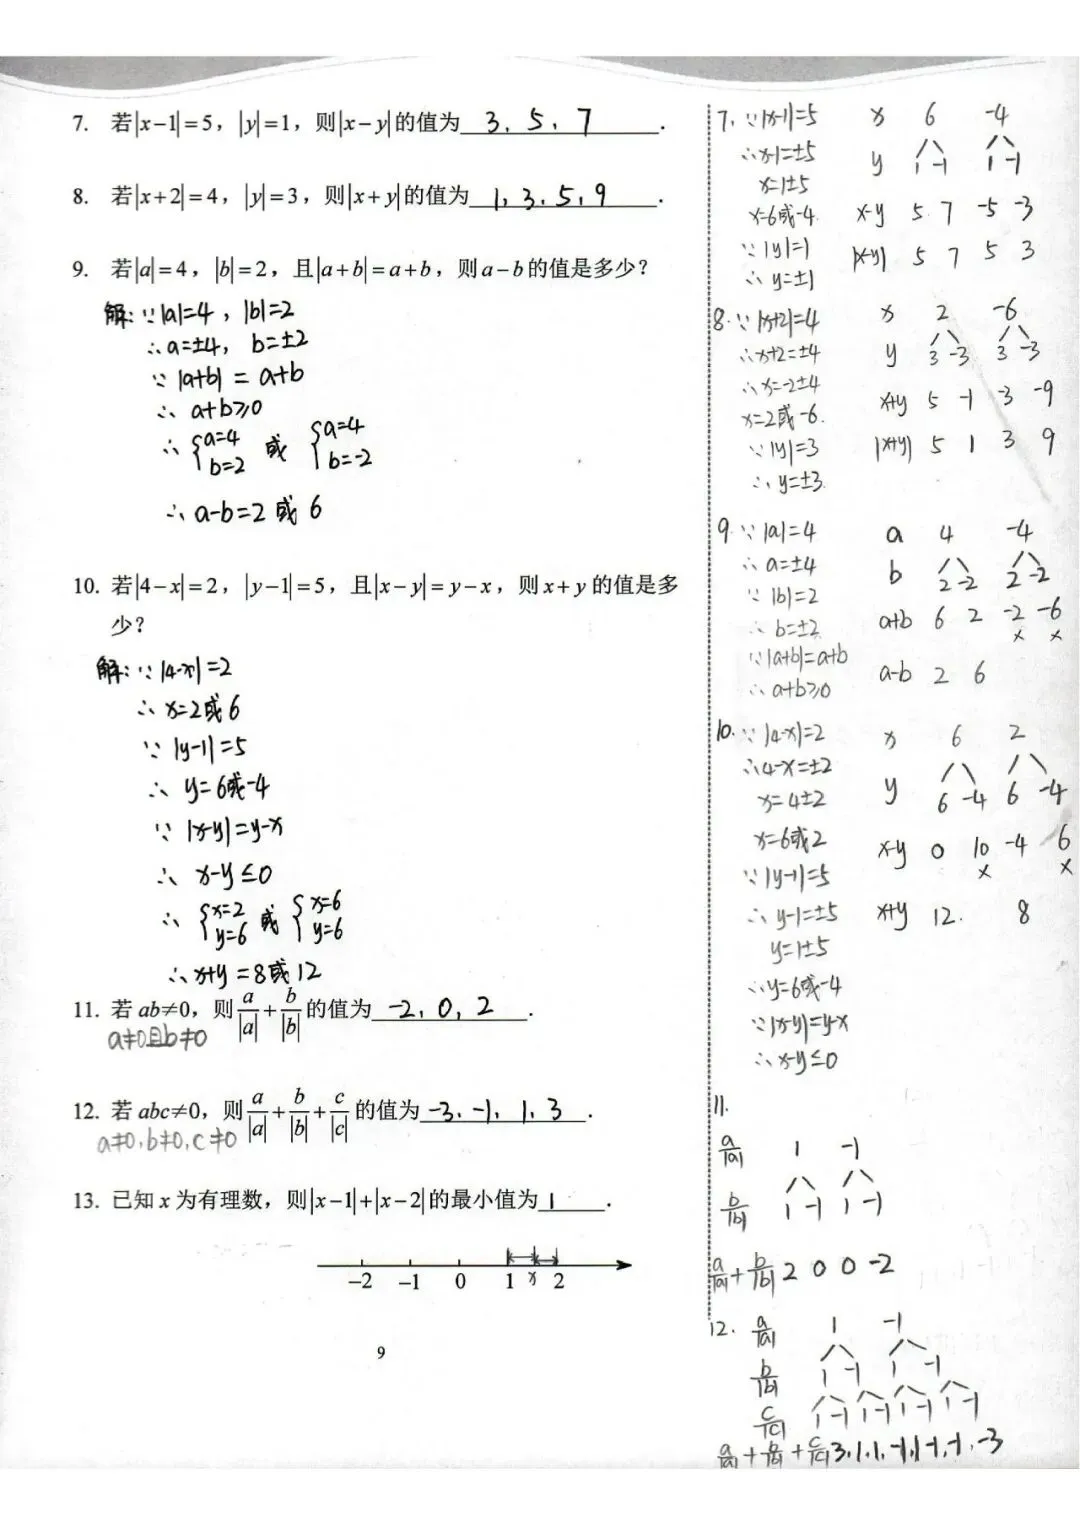 7. 若|x−1|=5，|y|=1，则|x−y|的值为 3, 5, 7 .
8. 若|x+2|=4，|y|=3，则|x+y|的值为 1, 3, 5, 9 .
9. 若|a|=4，|b|=2，且|a+b|=a+b，则a−b的值是多少？
解：∵|a|=4，|b|=2
∴a=±4，b=±2
∵|a+b|=a+b
∴a+b≥0
∴{a=4 b=2 或 {a=4 b=-2
∴a-b=2或6
10. 若|4−x|=2，|y−1|=5，且|x−y|=y−x，则x+y的值是多
少？
解：∵|4-x|=2
∴x=2或6
∵|y-1|=5
∴y=6或-4
∵|x-y|=y-x
∴x-y≤0
∴{x=2 y=6 或 {x=6 y=6
∴x+y=8或12
11. 若ab≠0，则a/|a|+b/|b|的值为 -2, 0, 2 .
a≠0且b≠0
12. 若abc≠0，则a/|a|+b/|b|+c/|c|的值为 -3, -1, 1, 3 .
a≠0, b≠0, c≠0
13. 已知x为有理数，则|x−1|+|x−2|的最小值为 1 .
−2 −1 0 1 x 2
9
7. ∵|x-1|=5
∴x-1=±5
x=1±5
x=6或-4
∵|y|=1
∴y=±1
x 6 -4
y 1 -1 1 -1
x-y 5 7 -5 -3
|x-y| 5 7 5 3
8. ∵|x+2|=4
∴x+2=±4
∴x=-2±4
x=2或-6.
∵|y|=3
∴y=±3.
x 2 -6
y 3 -3 3 -3
x+y 5 -1 -3 -9
|x+y| 5 1 3 9
9. ∵|a|=4
∴a=±4
∵|b|=2
∴b=±2
∵|a+b|=a+b
∴a+b≥0
a 4 -4
b 2 -2 2 -2
a+b 6 2 -2 -6
× ×
a-b 2 6
10. ∵|4-x|=2
∴4-x=±2
x=4±2
x=6或2
∵|y-1|=5
∴y-1=±5
y=1±5
∴y=6或-4
∵|x-y|=y-x
∴x-y≤0
x 6 2
y 6 -4 6 -4
x-y 0 10 -4 6
× ×
x+y 12. 8
11.
a/|a| 1 -1
b/|b| 1 -1 1 -1
a/|a|+b/|b| 2 0 0 -2
12. a/|a| 1 -1
b/|b| 1 -1 1 -1
c/|c| 1 -1 1 -1 1 -1 1 -1
a/|a|+b/|b|+c/|c| 3, 1, 1, -1, 1, -1, -1, -3